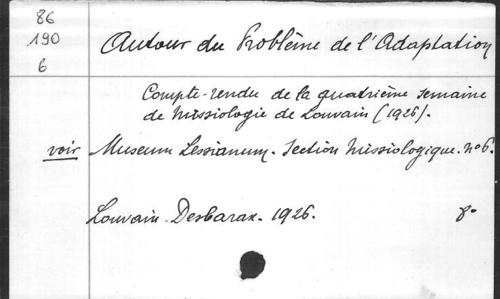 86
190
6
Autour du Problème de l'Adaptation
Compte-rendu de la quatrième semaine
de Missiologie de Louvain (1926).
voir Museum Lessianum. Section Missiologique. n° 6.
Louvain - Desbarax. 1926. 8°